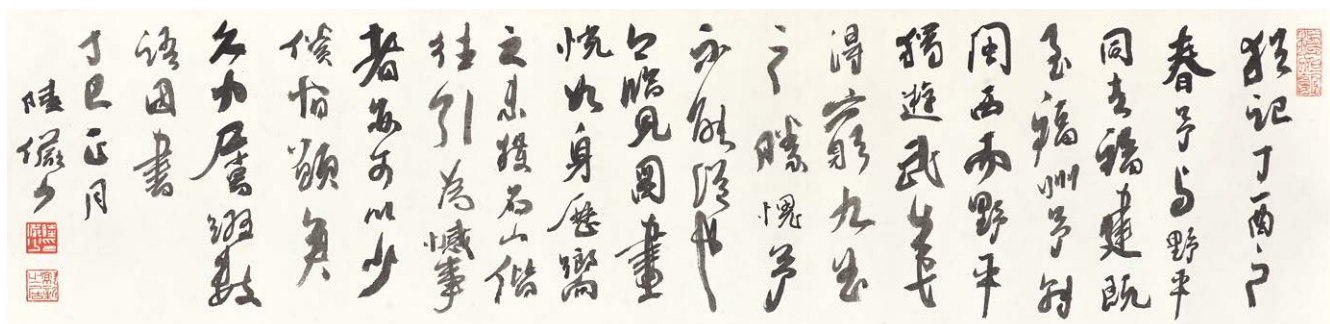 猶記丁酉之
春予与野平
同去福建既
至福州予赴
閩西而野平
獨遊武夷
得窮九曲
之勝愧予
不能從也
臨見圖畫
恍如身歷嚮
之未獲名山偕
往引為憾事
者亦可以少
償宿願矣
屬書綴數
語因書
丁巳正月
陸儼少